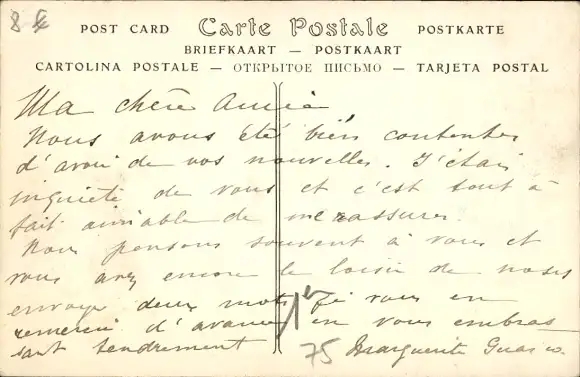 8 €
POST CARD Carte Postale POSTKARTE
BRIEFKAART — POSTKAART
CARTOLINA POSTALE — ОТКРЫТОЕ ПИСЬМО — TARJETA POSTAL
Ma chère Amie
Nous avons été bien contentes
d'avoir de vos nouvelles. J'étais
inquiète de vous et c'est tout à
fait aimable de me rassurer.
Nous pensons souvent à vous et
vous avez encore le loisir de nous
envoyer deux mots je vous en
remercie d'avance en vous embras
sant tendrement
75 Marguerite